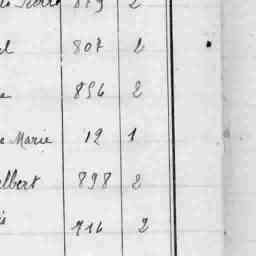 879 2
807 2
e 856 2
e Marie 12 1
elbert 898 2
is 716 2